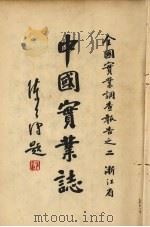 全國實業調查報告之二 浙江省
中國實業誌
題